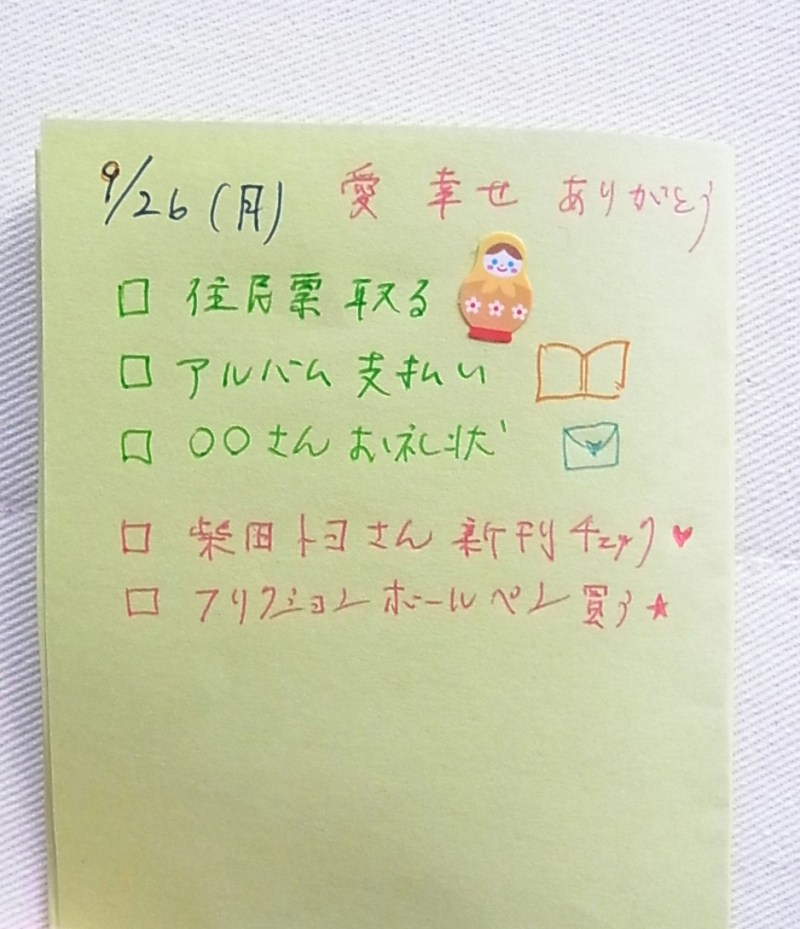 9/26(月) 愛 幸せ ありがとう
□ 住民票 取る
□ アルバム 支払い
□ 〇〇さん お礼状
□ 柴田トヨさん 新刊チェック♥
□ フリクションボールペン買う★